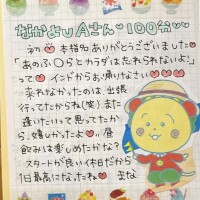 なかよしAさん♡100分♡♡
初♡本指名ありがとうございました
「あのふ○らとカラダは忘れられないよ」
って♡インドからお帰りなさい♡♡♡
来れなかったのは、出張
行ってたからね(笑)また
逢いたいって思ってたか
ら、嬉しかったよ♡♡昼
飲みは楽しめたかな?
スタートが良い休日だから
1日最高になったね♡まな